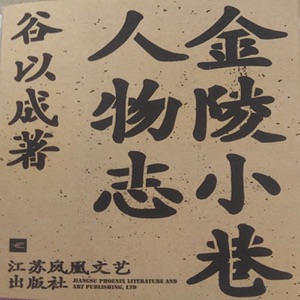 金陵小巷
人物志
谷以成著
江苏凤凰文艺
出版社
JIANGSU PHOENIX LITERATURE AND
ART PUBLISHING, LTD